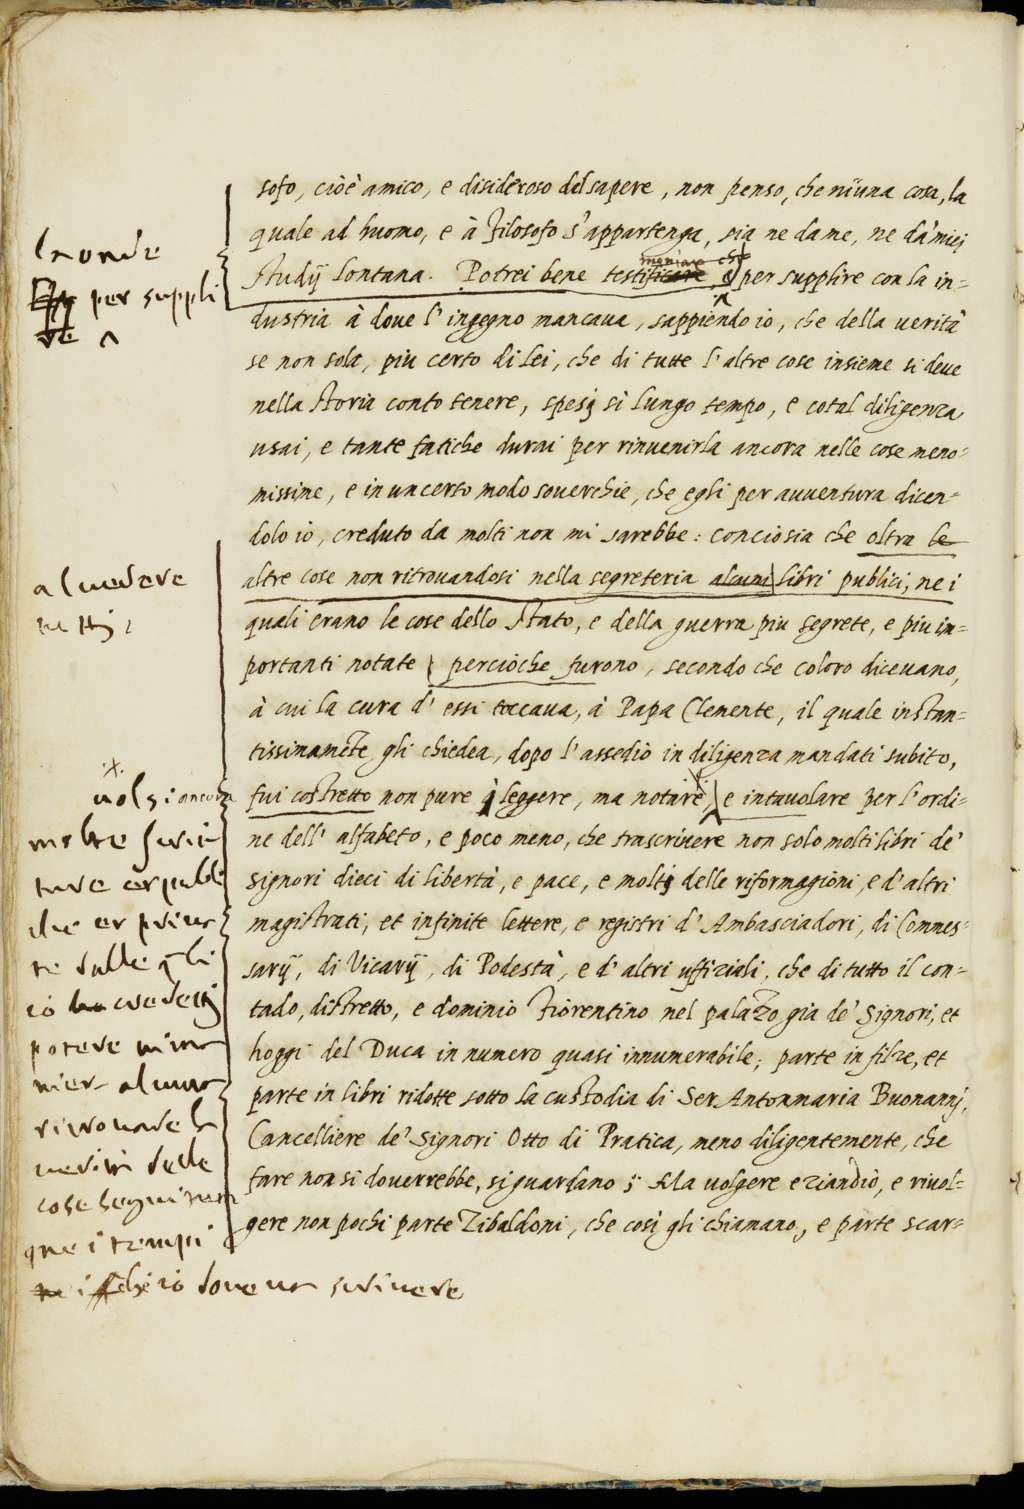 sofo, cioè amico, e disideroso del sapere, non penso, che niuna cosa, la
quale ad huomo, e à Filosofo s'appartenga, sia ne da me, ne da' miei
studij lontana. Potrei bene testificare, che per supplire con la in=
dustria à dove l'ingegno mancaua, sappiendo io, che della uerità
se non sola, piu certo di lei, che di tutte l'altre cose insieme si deue
nella storia conto tenere, spesi sì lungo tempo, e cotal diligenza
usai, e tante fatiche durai per rinuenirla ancora nelle cose meno=
missime, e in un certo modo souerchie, che egli per auuentura dicen=
dolo io, creduto da molti non mi sarebbe: conciosia che oltra le
altre cose non ritrouandosi nella segreteria alcuni libri publici, ne i
quali erano le cose dello Stato, e della guerra piu segrete, e piu im=
portanti notate perciòche furono, secondo che coloro diceuano,
à cui la cura d'essi toccaua, à Papa Clemente, il quale instan=
tissimamẽte gli chiedea, dopo l'assedio in diligenza mandati subito,
fui costretto non pure à leggere, ma notare, e intauolare per l'ordi=
ne dell'alfabeto, e poco meno, che trascriuere non solo molti libri de'
Signori dieci di libertà, e pace, e molti delle riformagioni, e d'altri
magistrati, et infinite lettere, e registri d'Ambasciadori, di Commes=
sarij, di Vicarij, di Podestà, e d'altri uffiziali, che di tutto il con=
tado, distretto, e dominio Fiorentino nel palazo gia de' Signori, et
hoggi del Duca in numero quasi innumerabile, parte in filze, et
parte in libri ridotte sotto la custodia di Ser Antonmaria Buonanni,
Cancelliere de' Signori Otto di Pratica, meno diligentemente, che
fare non si douerrebbe, si guardano; Ma uolgere eziandio, e riuol=
gere non pochi parte Zibaldoni, che così gli chiamano, e parte scar=
laonde
per suppli
re
al uedere
tutti i
uolsi ancora
molte scrit
ture et publi
che et priua
te dalle q̃li
io credetti
potere in
alcuna
ritrouare la
uerità delle
cose seguite in
que i tempi
che io doueua scriuere